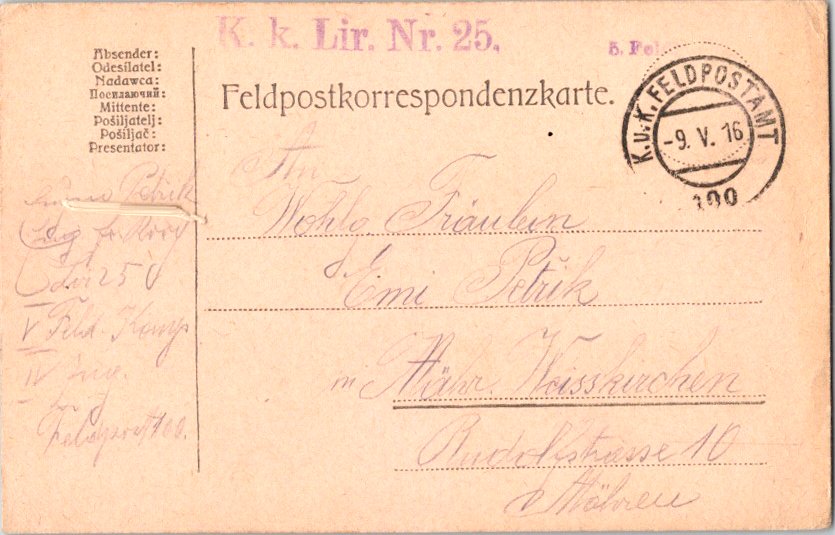 K. k. Lir. Nr. 25.
Absender:
Odesílatel:
Nadawca:
Посилаючий:
Mittente:
Pošiljatelj:
Pošiljač:
Presentator:
Feldpostkorrespondenzkarte.
K.u.K. FELDPOSTAMT
-9. V. 16
100
An
Wohlg. Fräulein
Emi Petřik
in Mähr. Weisskirchen
Rudolfstrasse 10
Mähren
Petřik
Lir 25
V Feld. Komp
IV Zug.
Feldpost 100.